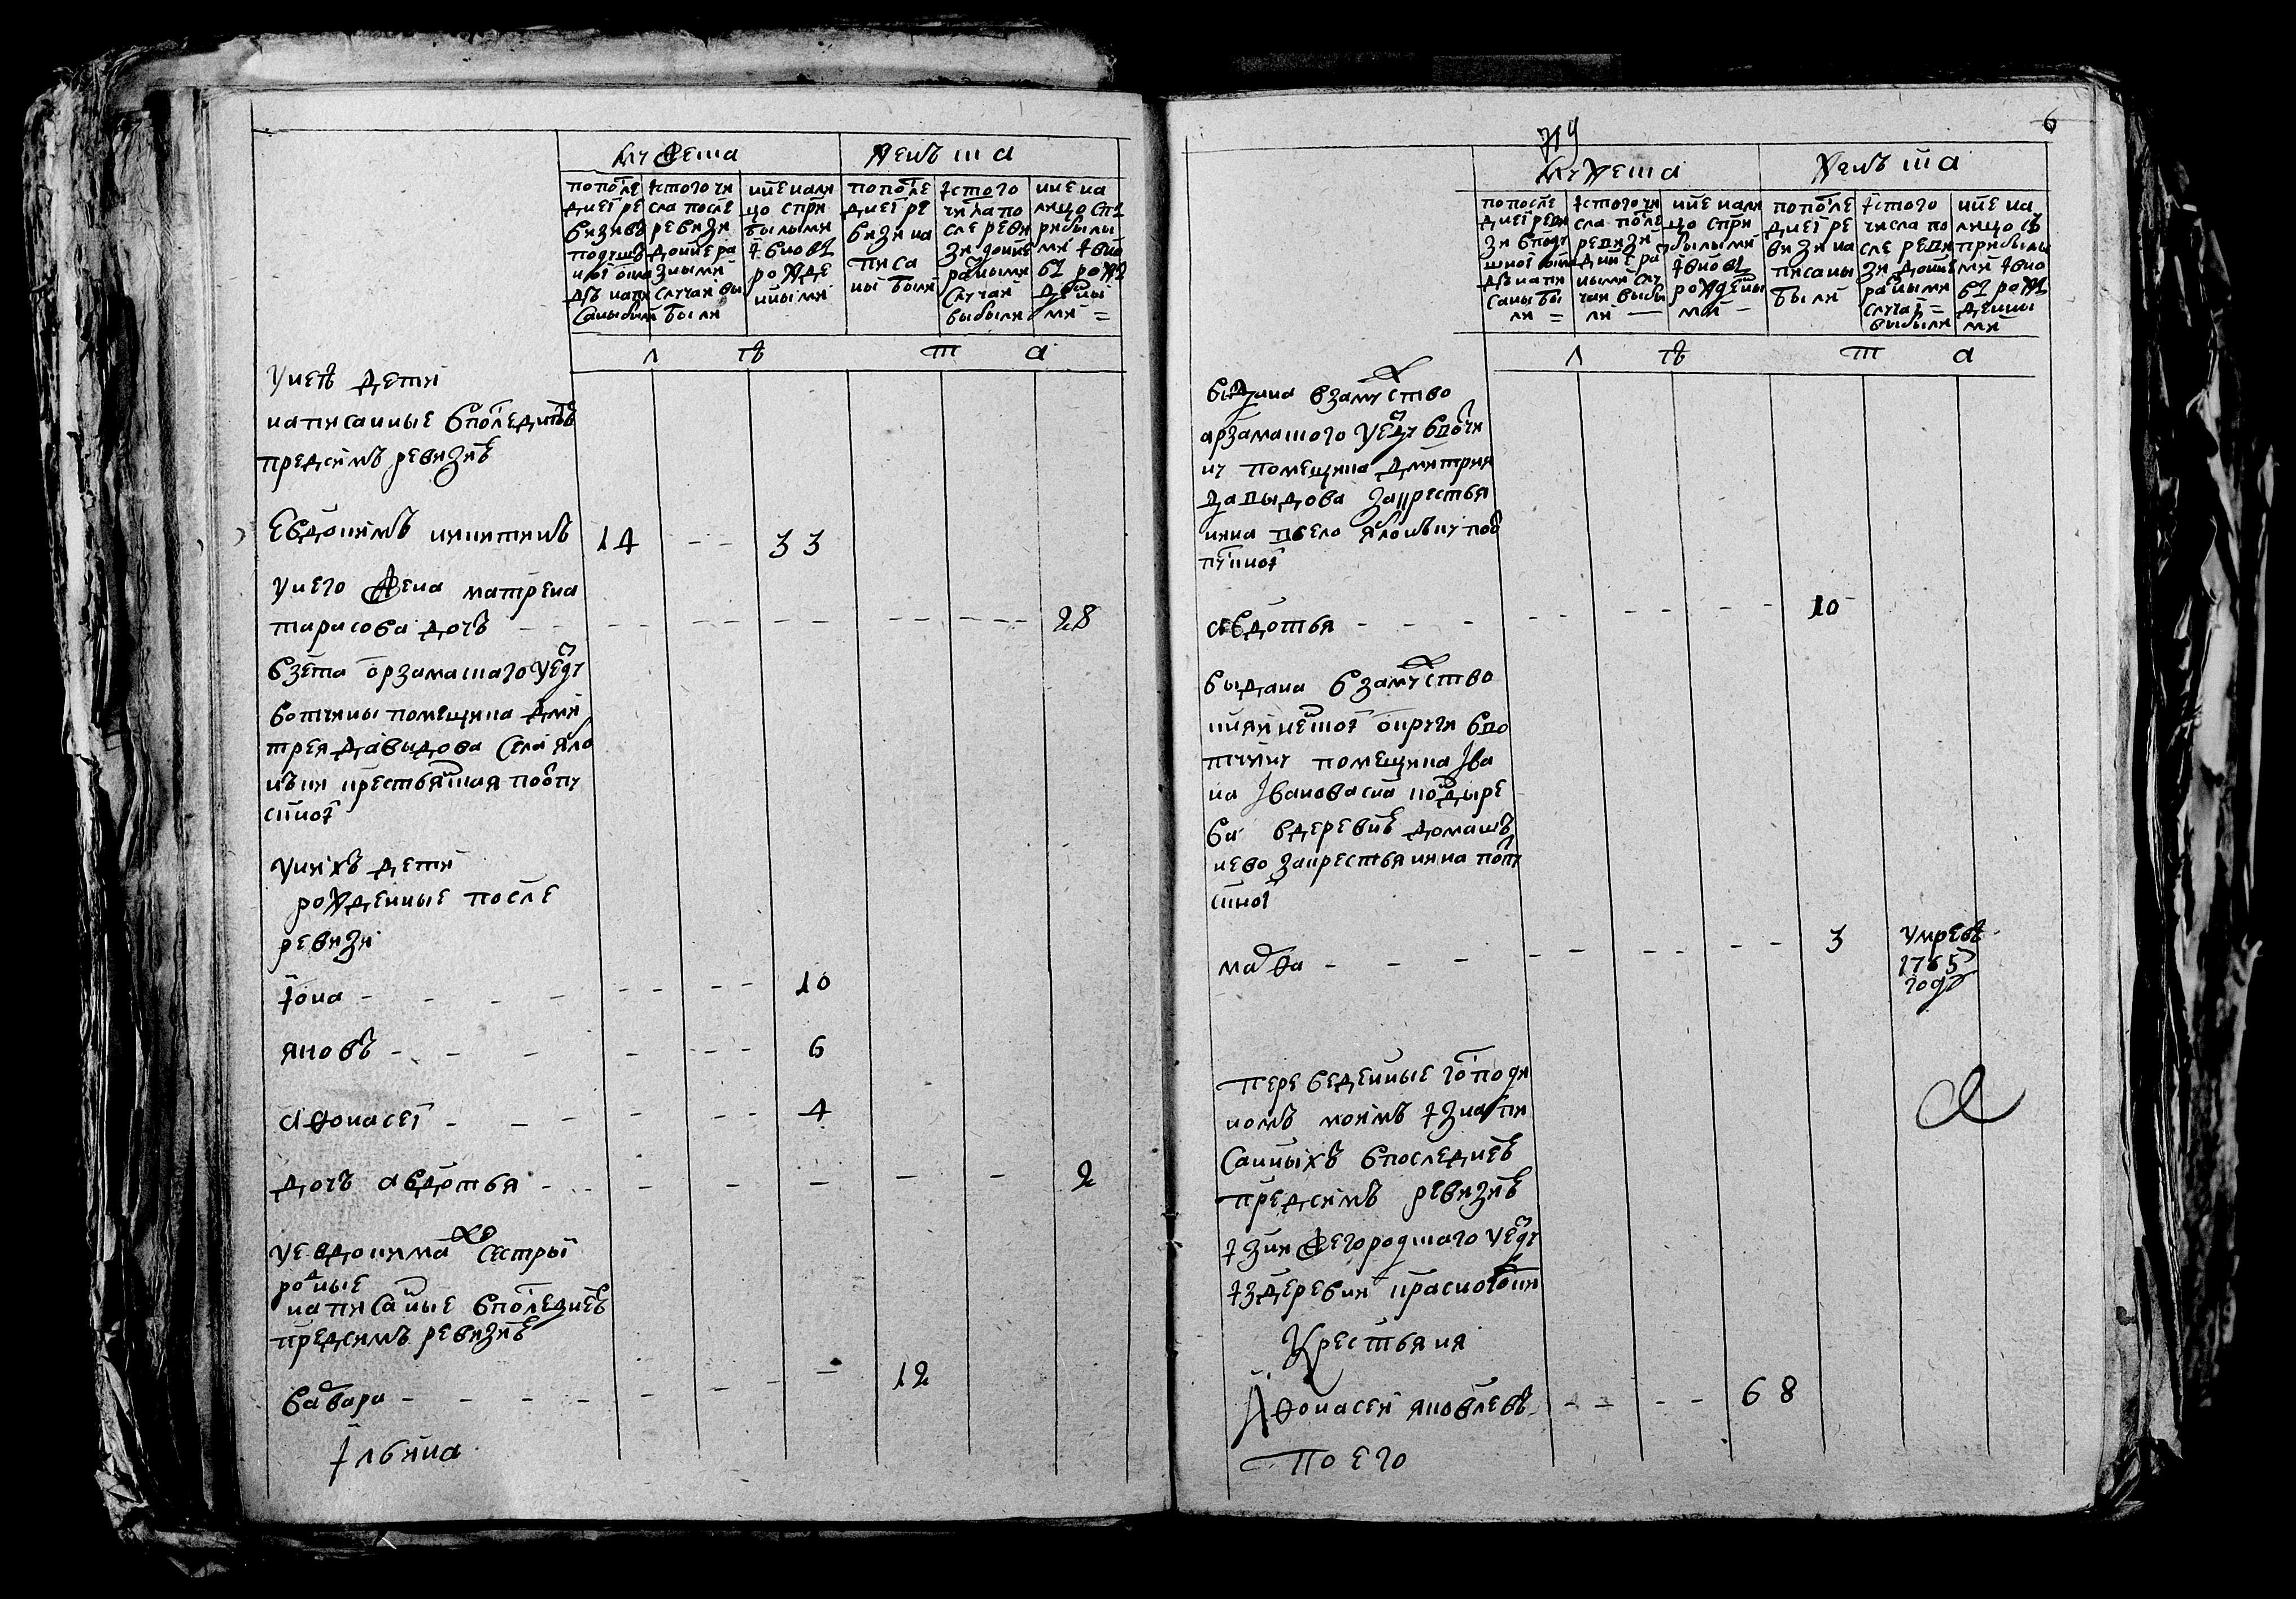 мужеска женска
пополе дней ре визиив подушъ ной окла дѣ напи саныбыли
істогочи сла после ревизи дойне ра зными случаи вы были
ныне нали цо спри былыми івновь рожде нными
пополе дней ре визи на писа ны были
істого числа по сле реви зи доине разными случаи выбыли
ныне на лицо спри рибылы ми івно вь рожденны ми =
л ѣ т а
унеѣ дети
написанные вполеднѣѣ
предсимъ ревизиѣ
Евдокимъ никитинъ 14 - - 33
унего жена матрена
тарасова дочь - - - - 28
взета орзамаскаго уезду
вотчины помещика дми
трея давыдова села яло
нъки крестьянская поотпу
скной
унихъ дети
рожденные после
ревизи
іона - - - - 10
яковъ - - - - 6
аѳонасеі - - - 4
дочь авдотья - - - - 2
уевдокима сестры
родные
написаные вполеднеѣ
предсимъ ревизиѣ
варвара - - - - 12
ільина
6
мужеска женска
попосле дней реви зи вподу шной окла дѣ напи саны бы ли =
істогочи сла после ревизи дойне ра зными слу чаи выбы ли —
ныне нали цо спри былыми івновь рожденны ми —
пополе дней ре визи на писаны были
істого числа по сле реви зи доине разными случаі = выбыли
ныне на лицо съ прибылы ми івно вь рож денны ми
л ѣ т а
выдана взамуство
арзамаского уезду ввотчи
ну помещика дмитрия
давыдова закрестья
нина всело ялонъку поот
пускной
авдотья - - - - 10
выдана взамуство
нижнешной округи вво
тчину помещика Iва
на Iвановасна поздыре
ва вдеревнѣ домашъ
нево закрестьянина поотпу
скной
марѳа - - - - 3 умревъ 1765 году
переведенные господи
номъ моимъ ізнапи
санныхъ впоследнеѣ
предсимъ ревизиѣ
ізнижегородцкаго уезду
іздеревни красной
Крестьяня
Аѳонасеи яковлевъ - - - 68
По его